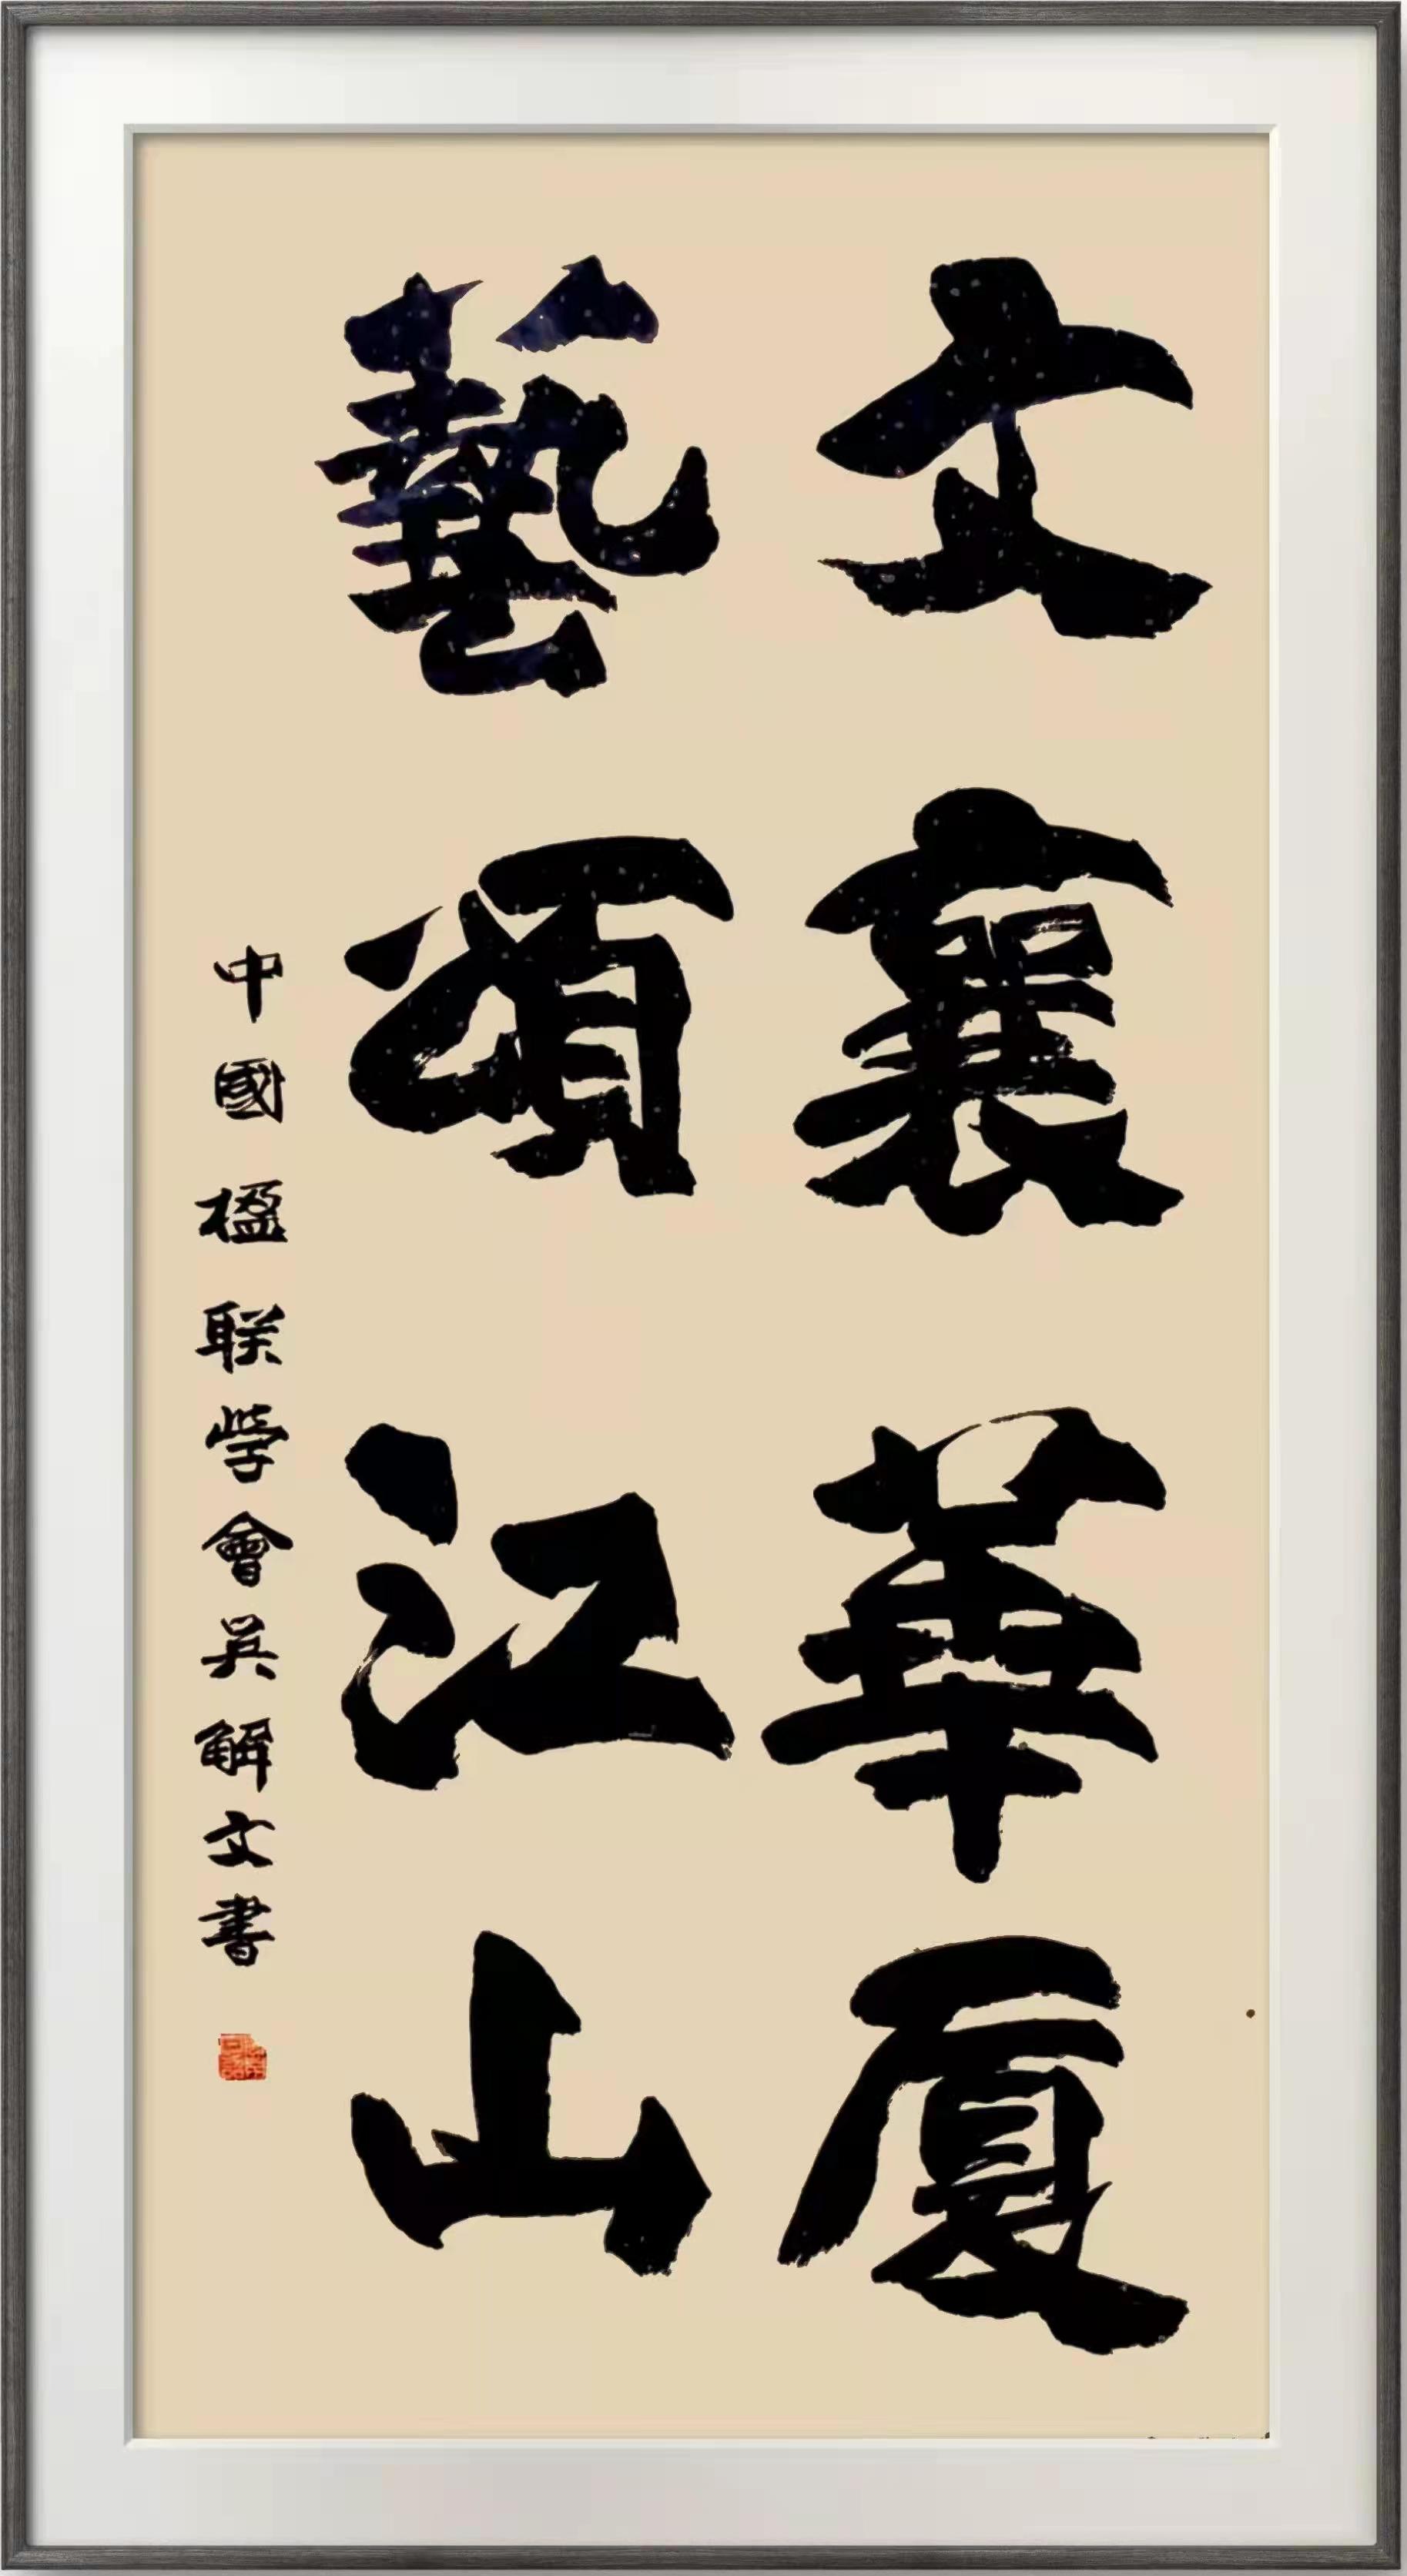 文襄華厦
藝頌江山
中國楹联學會吴解文書